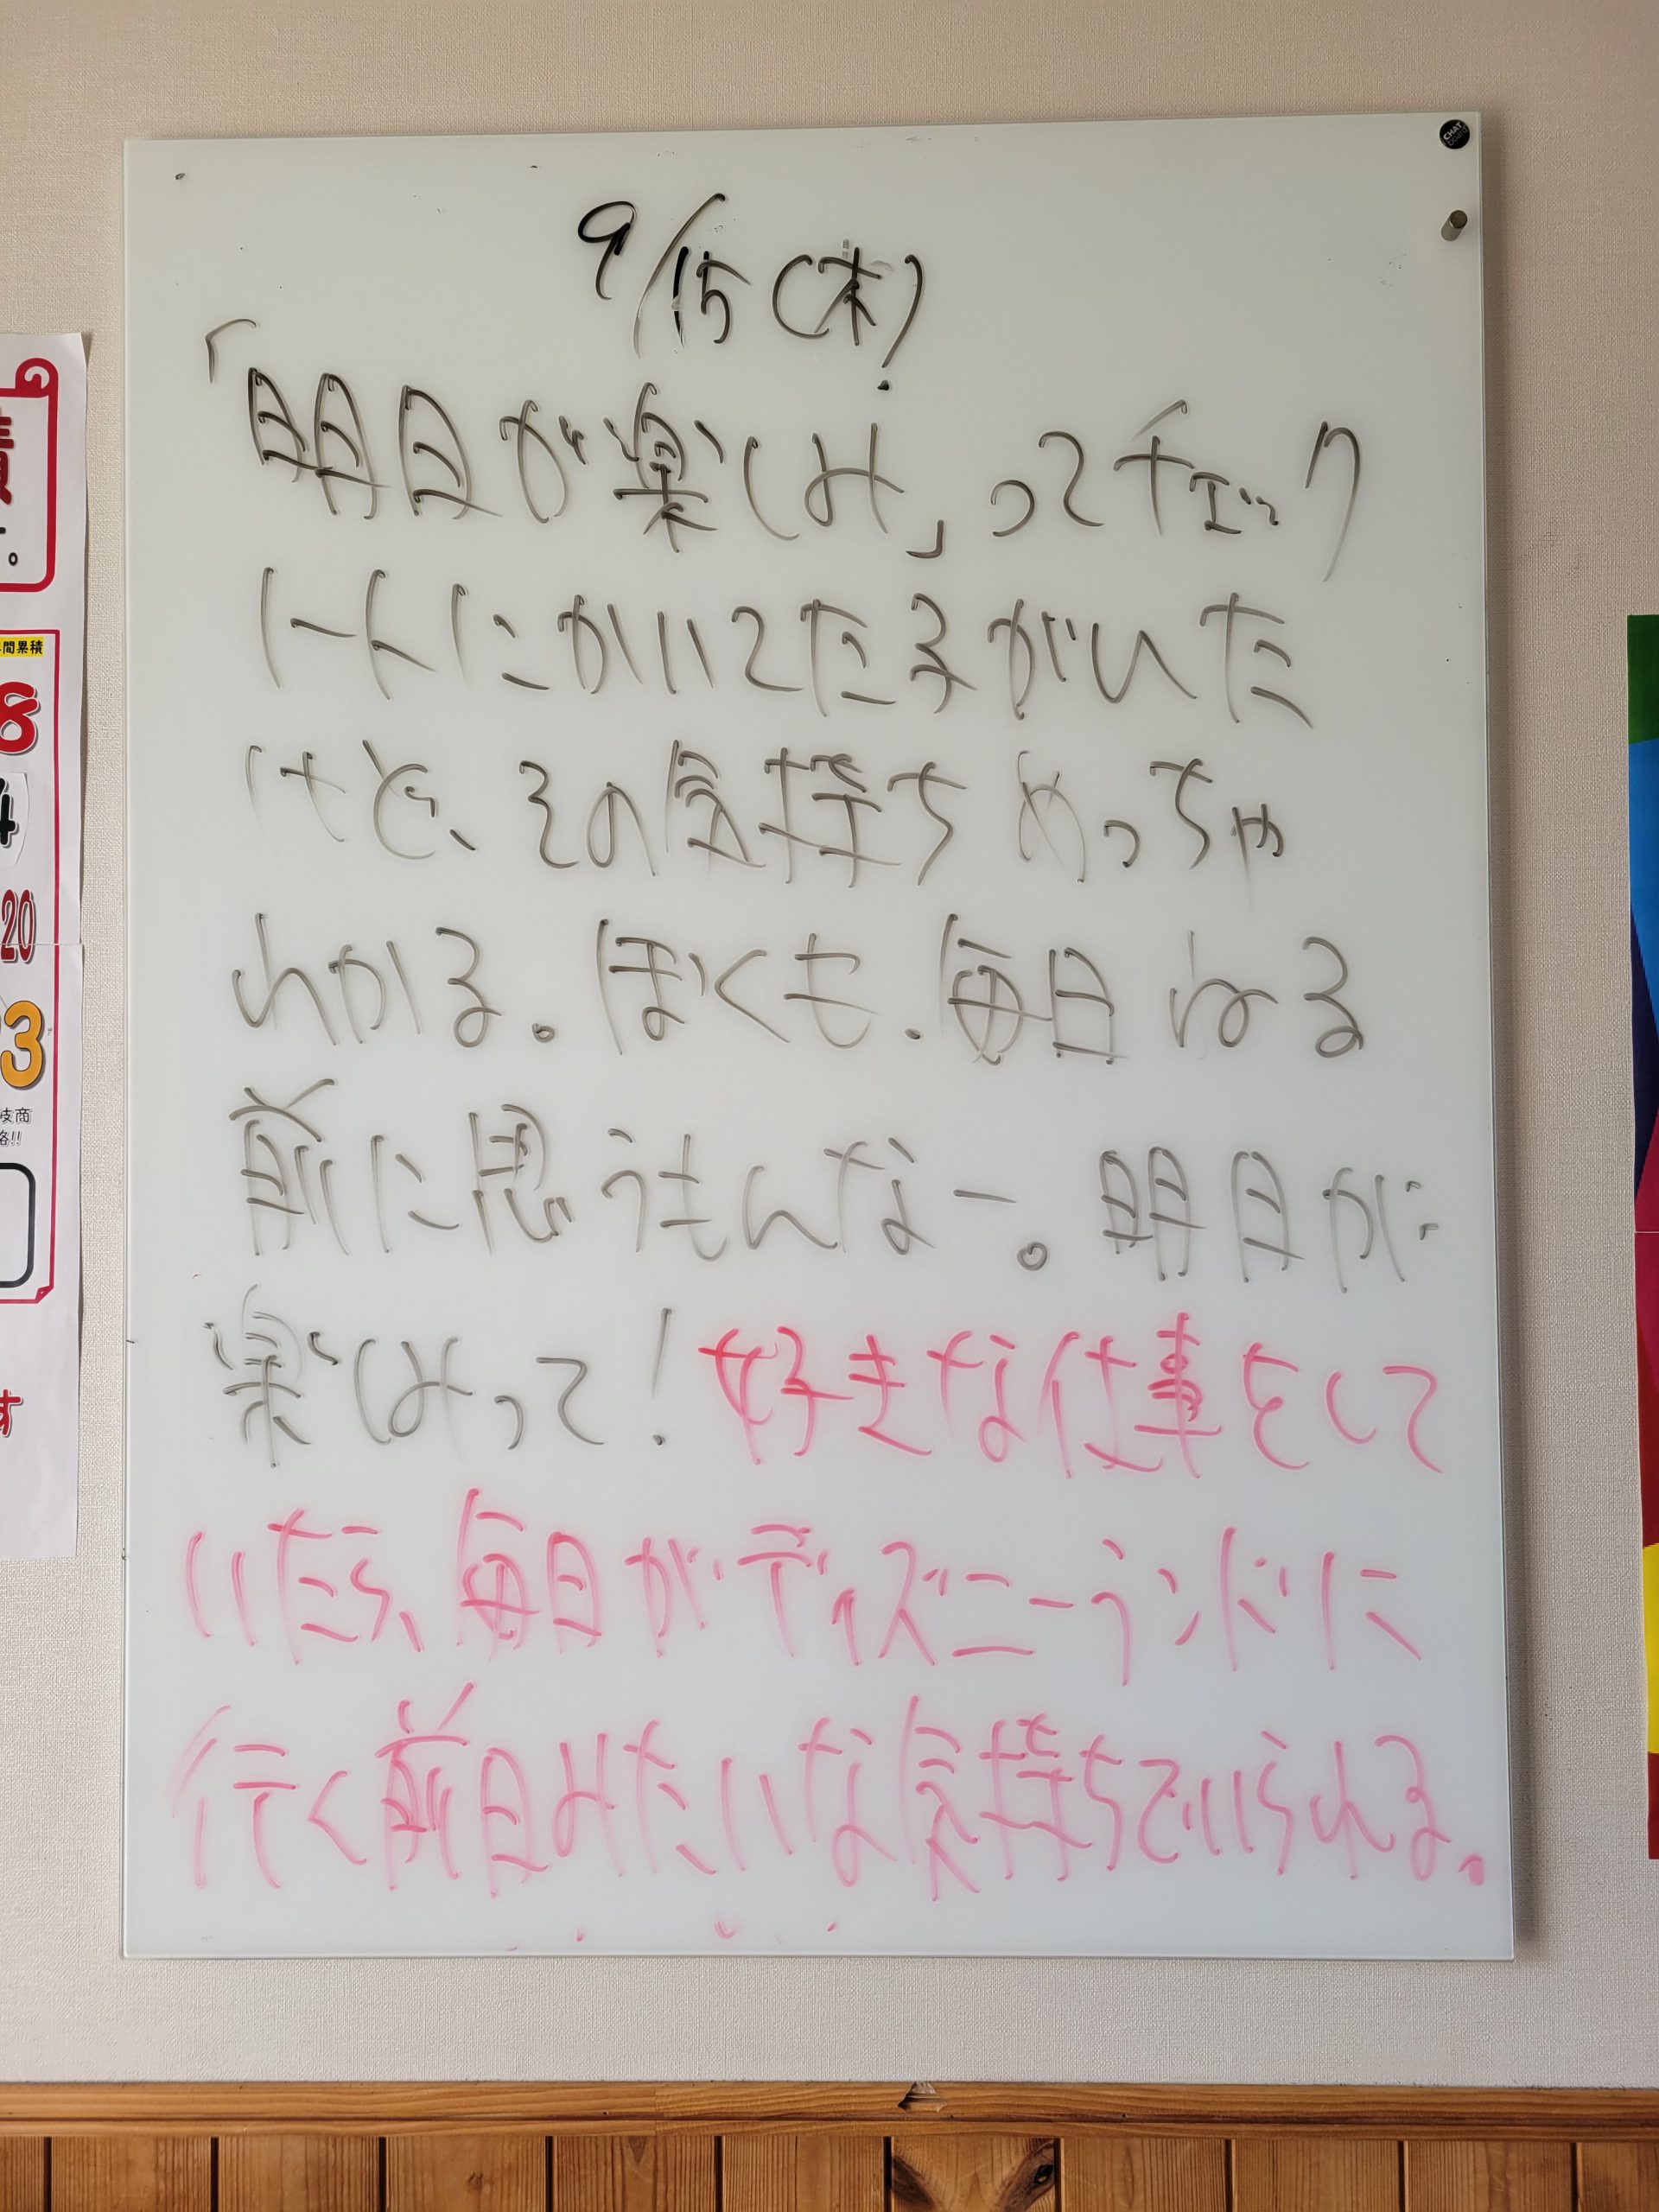 9/15(木)
「明日が楽しみ」ってチェック
ノートにかいてた子がいた
けど、その気持ちめっちゃ
わかる。ぼくも、毎日ねる
前に思うもんなー。明日が
楽しみって!好きな仕事をして
いたら、毎日がディズニーランドに
行く前日みたいな気持ちでいられる。
CHAT board
間累積
8
4
20
3
岐商
格!!
す